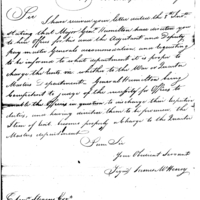 Sir
I have received your letter dated the 8th Inst.
stating that Major Genl Hamilton has written you
to hire Offices for and the Adjutant and Deputy
pay master Generals accommodation and requesting
to be informed to what department it is proper to
charge the rent on whether to the War or Quarter
Masters department. General Hamilton being
competent to judge of the necessity for Offices to
enable the Officers in question to discharge their respective
duties, and having written them to be procured the
Item of rent becomes properly a charge to the Quarter
Masters department
I am Sir
Your Obedient Servant
Signed James McHenry
Ebenr Stevens Esqr